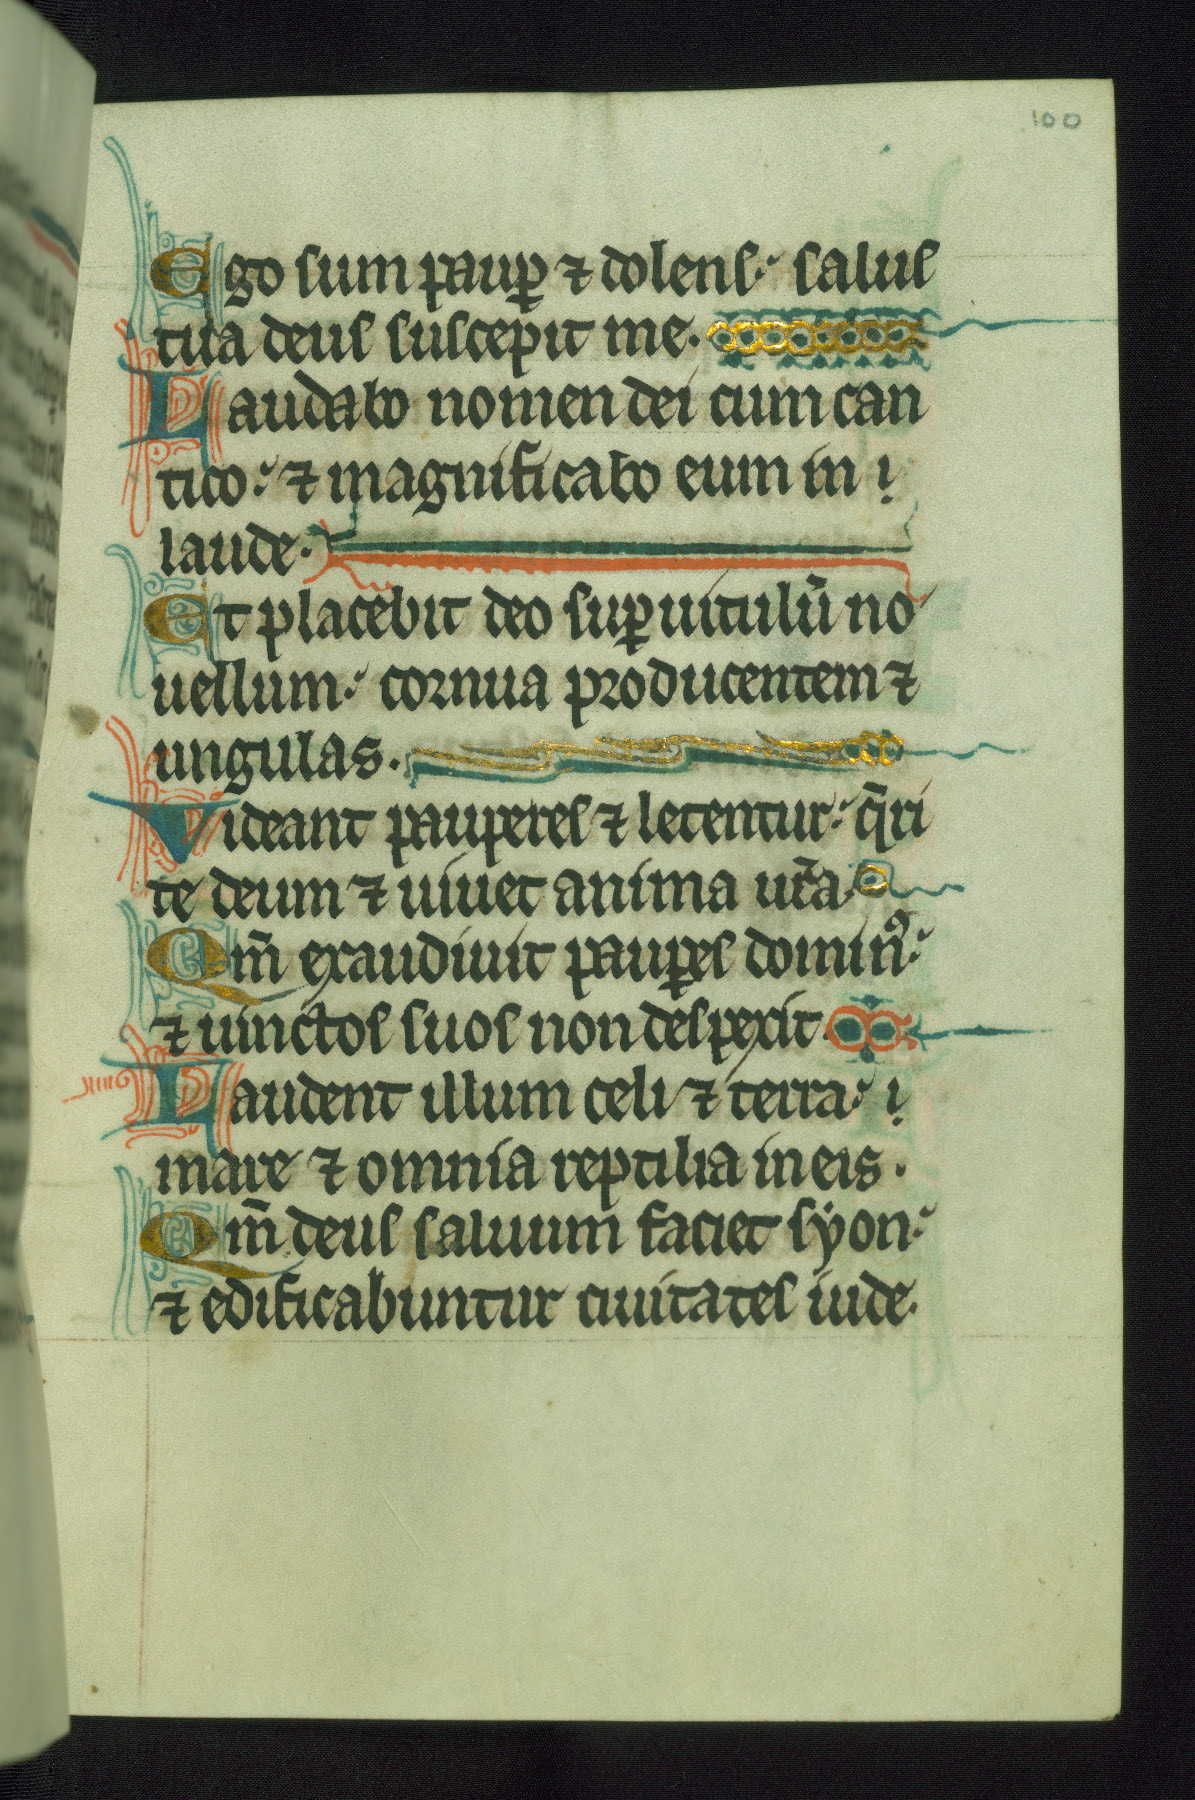 100
Ego sum paup̲ ⁊ dolens. salus
tua deus suscepit me.
Laudabo nomen dei cum can
tico. ⁊ magnificabo eum in
laude.
Et placebit deo sup̲ uitulū no
uellum. cornua producentem ⁊
ungulas.
Videant pauperes ⁊ letentur. q̄ri
te deum ⁊ uiuet anima ur̄a
Qm̄ exaudiuit paup̲es dominꝰ.
⁊ uinctos suos non despexit
Laudent illum celi ⁊ terra.
mare ⁊ omnia reptilia in eis.
Qm̄ deus saluum faciet syon.
⁊ edificabuntur ciuitates iude.